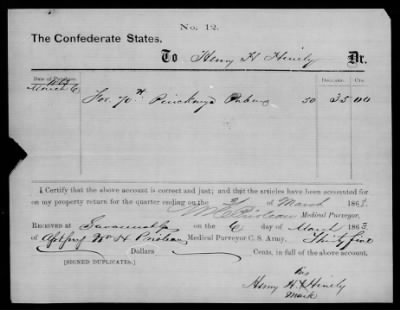 No. 12.
The Confederate States,
To Henry H Hinely Dr.
Date of Purchase. Dollars. Cts.
1863
March 6 For 70 lb Pinckneya Pubens 50 35 00
I Certify that the above account is correct and just; and that the articles have been accounted for
on my property return for the quarter ending on the 31 of March 1863.
W H Prioleau Medical Purveyor.
Received at Savannah Ga on the 6 March 1863
of W H Prioleau Medical Purveyor C. S. Army, Thirty five
Dollars Cents, in full of the above account.
[SIGNED DUPLICATES.]
his
Henry H X Hinely
mark